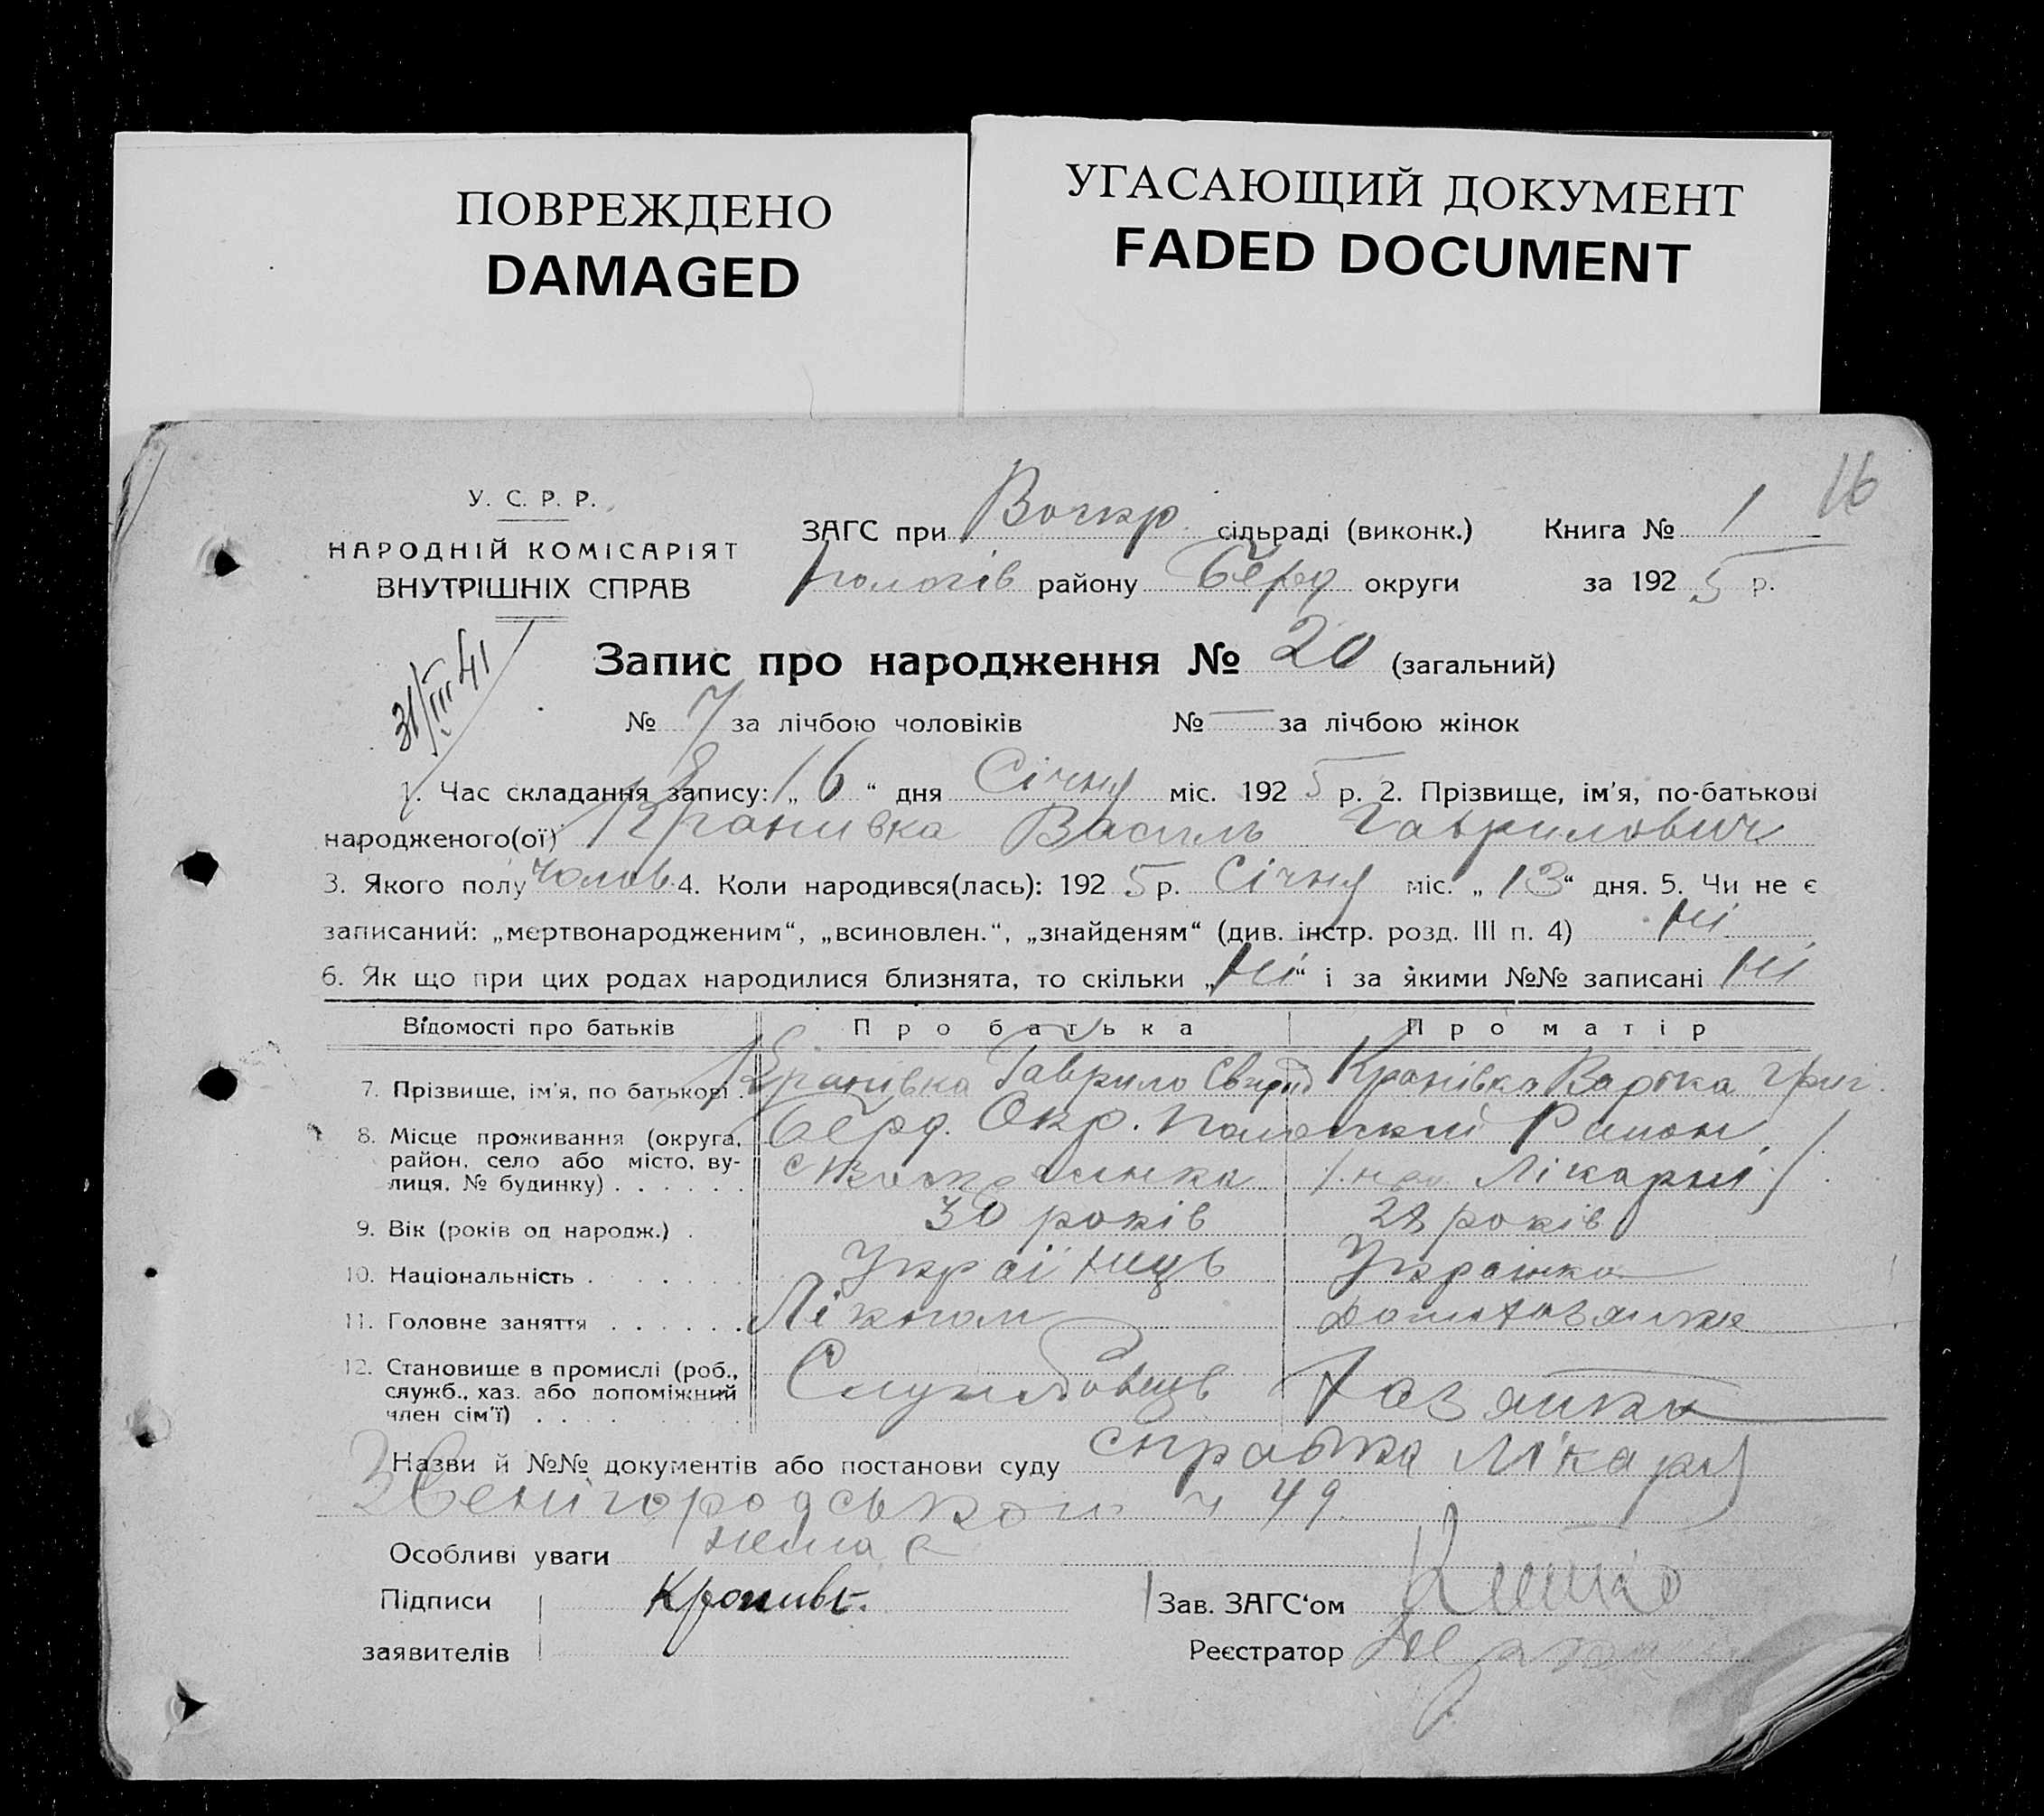 ПОВРЕЖДЕНО
DAMAGED
УГАСАЮЩИЙ ДОКУМЕНТ
FADED DOCUMENT
16
У. С. Р. Р.
НАРОДНІЙ КОМІСАРІЯТ
ВНУТРІШНІХ СПРАВ
ЗАГС при Воскр. сільраді (виконк.) Книга № 1
пологів району Берд округи за 1925 р.
31/III 41
Запис про народження № 20 (загальний)
№ 7 за лічбою чоловіків № — за лічбою жінок
1. Час складання запису: „16“ дня Січня міс. 1925 р. 2. Прізвище, ім'я, по-батькові
народженого(ої) Кропивка Василь Гаврилович
3. Якого полу чолов. 4. Коли народився(лась): 1925 р. Січня міс. „13“ дня. 5. Чи не є
записаний: „мертвонародженим“, „всиновлен.“, „знайденям“ (див. інстр. розд. III п. 4) Ні
6. Як що при цих родах народилися близнята, то скільки „Ні“ і за якими №№ записані Ні
Відомості про батьків Про батька Про матір
7. Прізвище, ім'я, по батькові Кропивка Гаврило Свирид Кропівка Варка Григ.
8. Місце проживання (округа, район, село або місто, вулиця, № будинку) Берд. Окр. Пологський Район
Лікарні/
9. Вік (років од народж.) 30 років 28 років
10. Національність Українець Українка
11. Головне заняття Лікпом домохазяйка
12. Становище в промислі (роб., служб., хаз. або допоміжний член сім'ї) Службовець Хазяйка
Назви й №№ документів або постанови суду справка Лікаря
Звенігородського 49.
Особливі уваги немає
Підписи Кропивк. Зав. ЗАГС'ом
заявителів Реєстратор